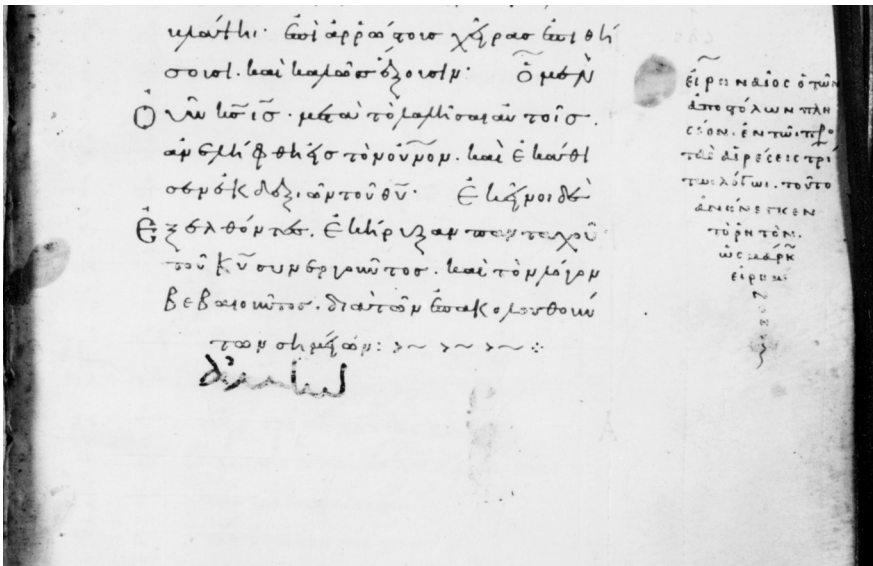 βλάψηι· ἐπὶ ἀρρώστους χεῖρας ἐπιθή
σουσι. καὶ καλῶς ἕξουσιν· ὁ μὲν
οὖν κ̅ς̅ ι̅ς̅. μετὰ τὸ λαλῆσαι αὐτοῖς.
ἀνελήφθη εἰς τὸν οὐ̅ν̅ο̅ν̅. καὶ ἐκάθι
σεν ἐκ δεξιῶν τοῦ θ̅υ̅· ἐκεῖνοι δὲ
ἐξελθόντες. ἐκήρυξαν πανταχοῦ
τοῦ κ̅υ̅ συνεργοῦντος. καὶ τὸν λόγον
βεβαιοῦντος. διὰ τῶν ἐπακολουθούν
των σημείων:
εἰρηναῖος ὁ τῶν
ἀποστόλων πλη
σίον. ἐν τῶι πρὸς
τὰς αἱρέσεις τρί
τωι λόγωι. τοῦτο
ἀνήνεγκεν
τὸ ῥητὸν.
ὡς μάρκ
εἰρημ